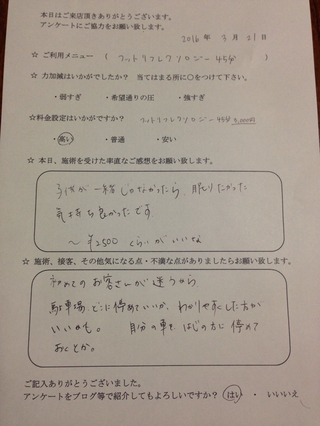 本日はご来店頂きありがとうございます。
アンケートにご協力をお願い致します。
2016年 3月 21日
☆ ご利用メニュー ( フットリフレクソロジー 45分 )
☆ 力加減はいかがでしたか? 当てはまる所に○をつけて下さい。
・弱すぎ ・希望通りの圧 ・強すぎ
☆料金設定はいかがですか? フットリフレクソロジー 45分 3,000円
・高い ・普通 ・安い
☆ 本日、施術を受けた率直なご感想をお願い致します。
が一緒じゃなかったら、眠りたかった
気持ち良かったです
~¥2500 くらいがいいな
☆ 施術、接客、その他気になる点・不満な点がありましたらお願い致します。
初めてのお客さんが迷うから
駐車場どこに停めていいか、わかりやすくした方が
いいかも。 自分の車を はじの方に停めて
おくとか。
ご記入ありがとうございました。
アンケートをブログ等で紹介してもよろしいですか? はい ・ いいえ